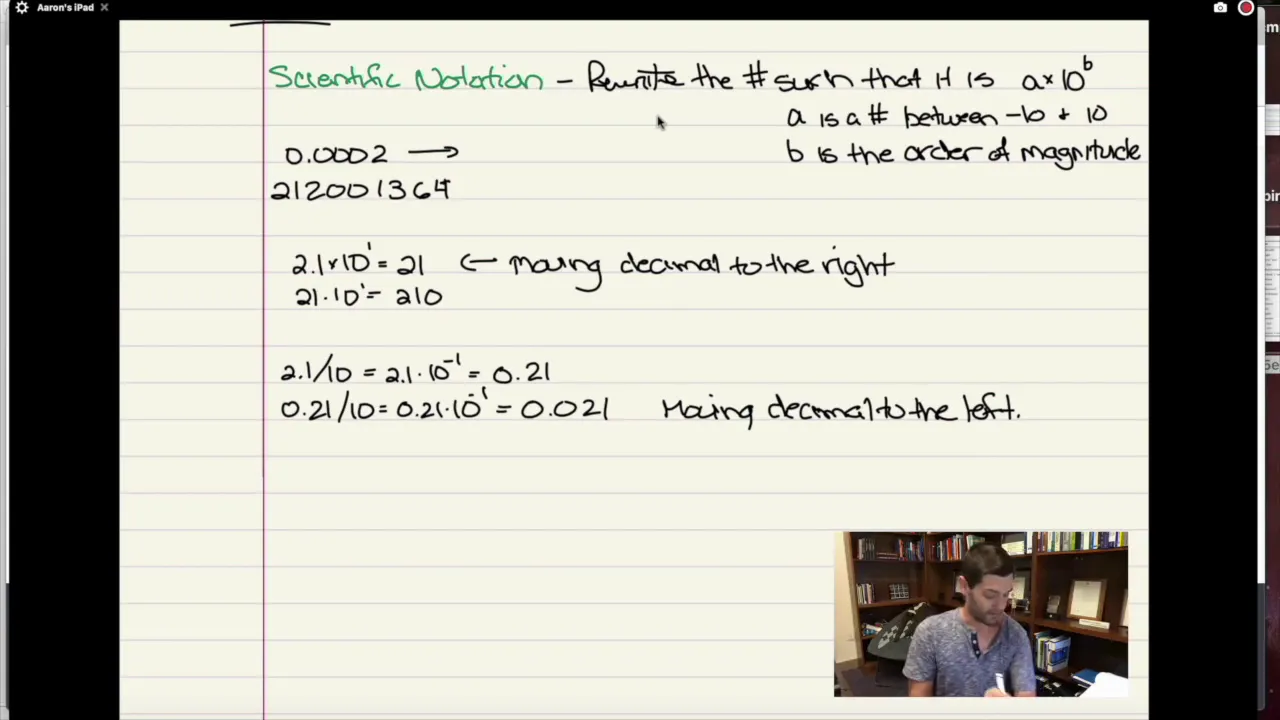 Aaron's iPad
Scientific Notation - Rewrite the # such that it is a×10^b
a is a # between -10 + 10
b is the order of magnitude
0.0002 →
212001364
2.1×10^1 = 21 ← moving decimal to the right
21·10^1 = 210
2.1/10 = 2.1·10^-1 = 0.21
0.21/10 = 0.21·10^-1 = 0.021 Moving decimal to the left.